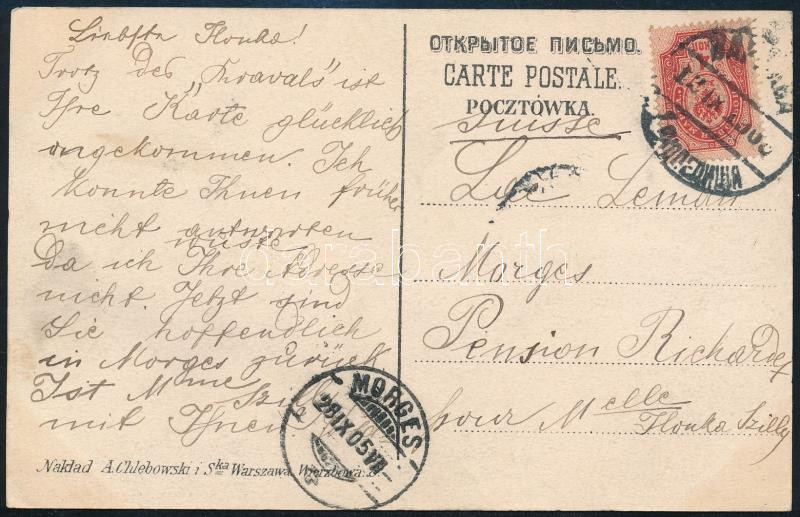 Liebste Ilonka!
Trotz des „Kravals" ist
Ihre Karte glücklich
angekommen. Ich
konnte Ihnen früher
nicht antworten
wüste
Da ich Ihre Adresse
nicht. Jetzt sind
Sie hoffendlich
in Morges zurück
Ist Mme Szilly
mit Ihnen
Nakład A. Chlębowski i Ska Warszawa, Wierzbowa
ОТКРЫТОЕ ПИСЬМО.
CARTE POSTALE.
POCZTÓWKA.
Suisse
Lac Leman
Morges
Pension Richardet
pour Melle
Ilonka Szilly
MORGES
28 IX 05 VII
darabanth